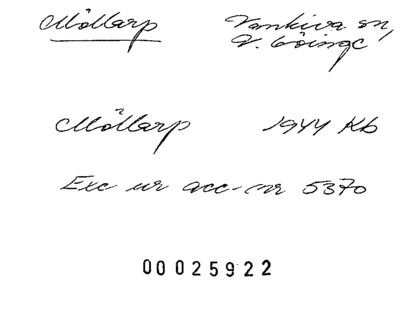 Möllarp Vankiva sn,
V. Göinge
Möllarp 1944 Kb
Exc ur acc-nr 5370
00025922